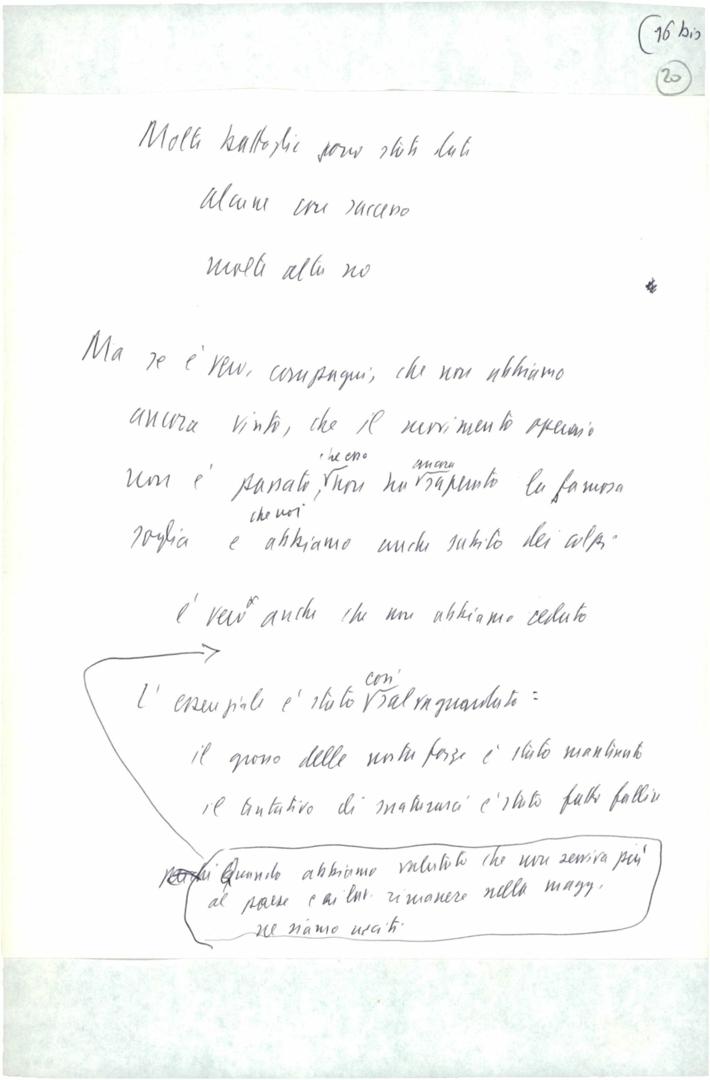 (16 bis
20
Molte battaglie sono state date
alcune con successo
molte altre no
Ma se è vero, compagni, che non abbiamo
ancora vinto, che il movimento operaio
che esso ancora
non è passato, non ha superato la famosa
che noi
soglia e abbiamo anche subito dei colpi
è vero anche che non abbiamo ceduto
così
L'essenziale è stato salvaguardato:
il grosso delle nostre forze è stato mantenuto
il tentativo di snaturarci è stato fatto fallire
Quando abbiamo valutato che non serviva più
al paese e ai lav. rimanere nella magg.
ne siamo usciti.